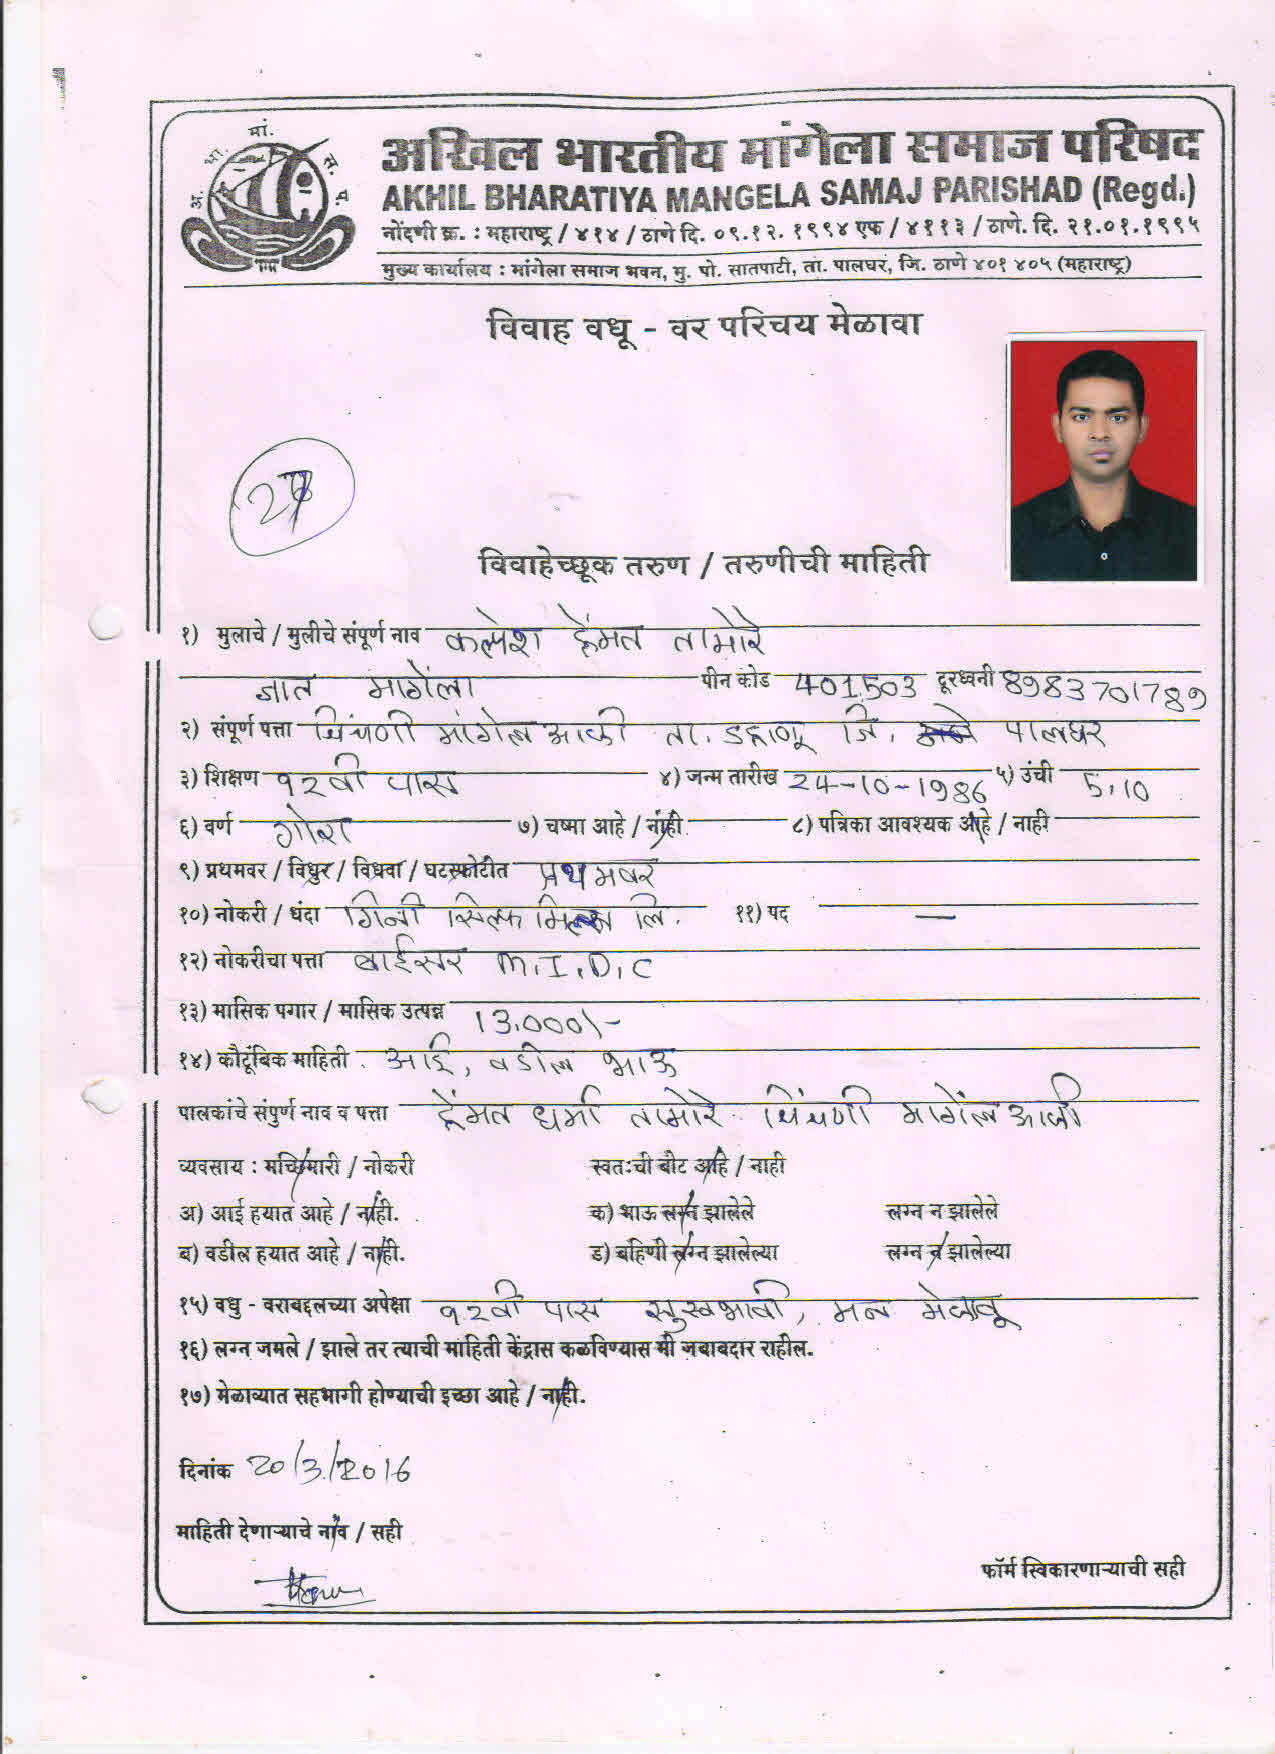 अ. भा. मां. स. प.
अखिल भारतीय मांगेला समाज परिषद
AKHIL BHARATIYA MANGELA SAMAJ PARISHAD (Regd.)
नोंदणी क्र. : महाराष्ट्र / ४१४ / ठाणे दि. ०९.१२. १९९४ एफ / ४११३ / ठाणे. दि. २१.०१.१९९५
मुख्य कार्यालय : मांगेला समाज भवन, मु. पो. सातपाटी, ता. पालघर, जि. ठाणे ४०१ ४०५ (महाराष्ट्र)
विवाह वधू - वर परिचय मेळावा
विवाहेच्छूक तरुण / तरुणीची माहिती
१) मुलाचे / मुलीचे संपूर्ण नाव कल्पेश हेंमत तामोरे
जात मागेंला पीन कोड 401503 दूरध्वनी 8983701789
२) संपूर्ण पत्ता चिंचणी मांगेल आळी ता. डहाणू जि. पालघर
३) शिक्षण १२वी पास ४) जन्म तारीख 24-10-1986 ५) उंची 5.10
६) वर्ण गोरा ७) चष्मा आहे / नाही ८) पत्रिका आवश्यक आहे / नाही
९) प्रथमवर / विधुर / विधवा / घटस्फोटीत प्रथमवर
१०) नोकरी / धंदा गिनी सिल्क मिल्स लि. ११) पद —
१२) नोकरीचा पत्ता बाईसर M.I.D.C
१३) मासिक पगार / मासिक उत्पन्न 13.000/-
१४) कौटूंबिक माहिती . आई, वडील भाऊ
पालकांचे संपुर्ण नाव व पत्ता हेंमत धर्मा तामोरे चिंचणी मागेंल आळी
व्यवसाय : मच्छिमारी / नोकरी स्वतःची बोट आहे / नाही
अ) आई हयात आहे / नाही. क) भाऊ लग्न झालेले लग्न न झालेले
ब) वडील हयात आहे / नाही. ड) बहिणी लग्न झालेल्या लग्न न झालेल्या
१५) वधु - वराबद्दलच्या अपेक्षा १२वी पास सुस्वभावी, मन मेळावू
१६) लग्न जमले / झाले तर त्याची माहिती केंद्रास कळविण्यास मी जबाबदार राहील.
१७) मेळाव्यात सहभागी होण्याची इच्छा आहे / नाही.
दिनांक 20/3/2016
माहिती देणाऱ्याचे नांव / सही
फॉर्म स्विकारणाऱ्याची सही